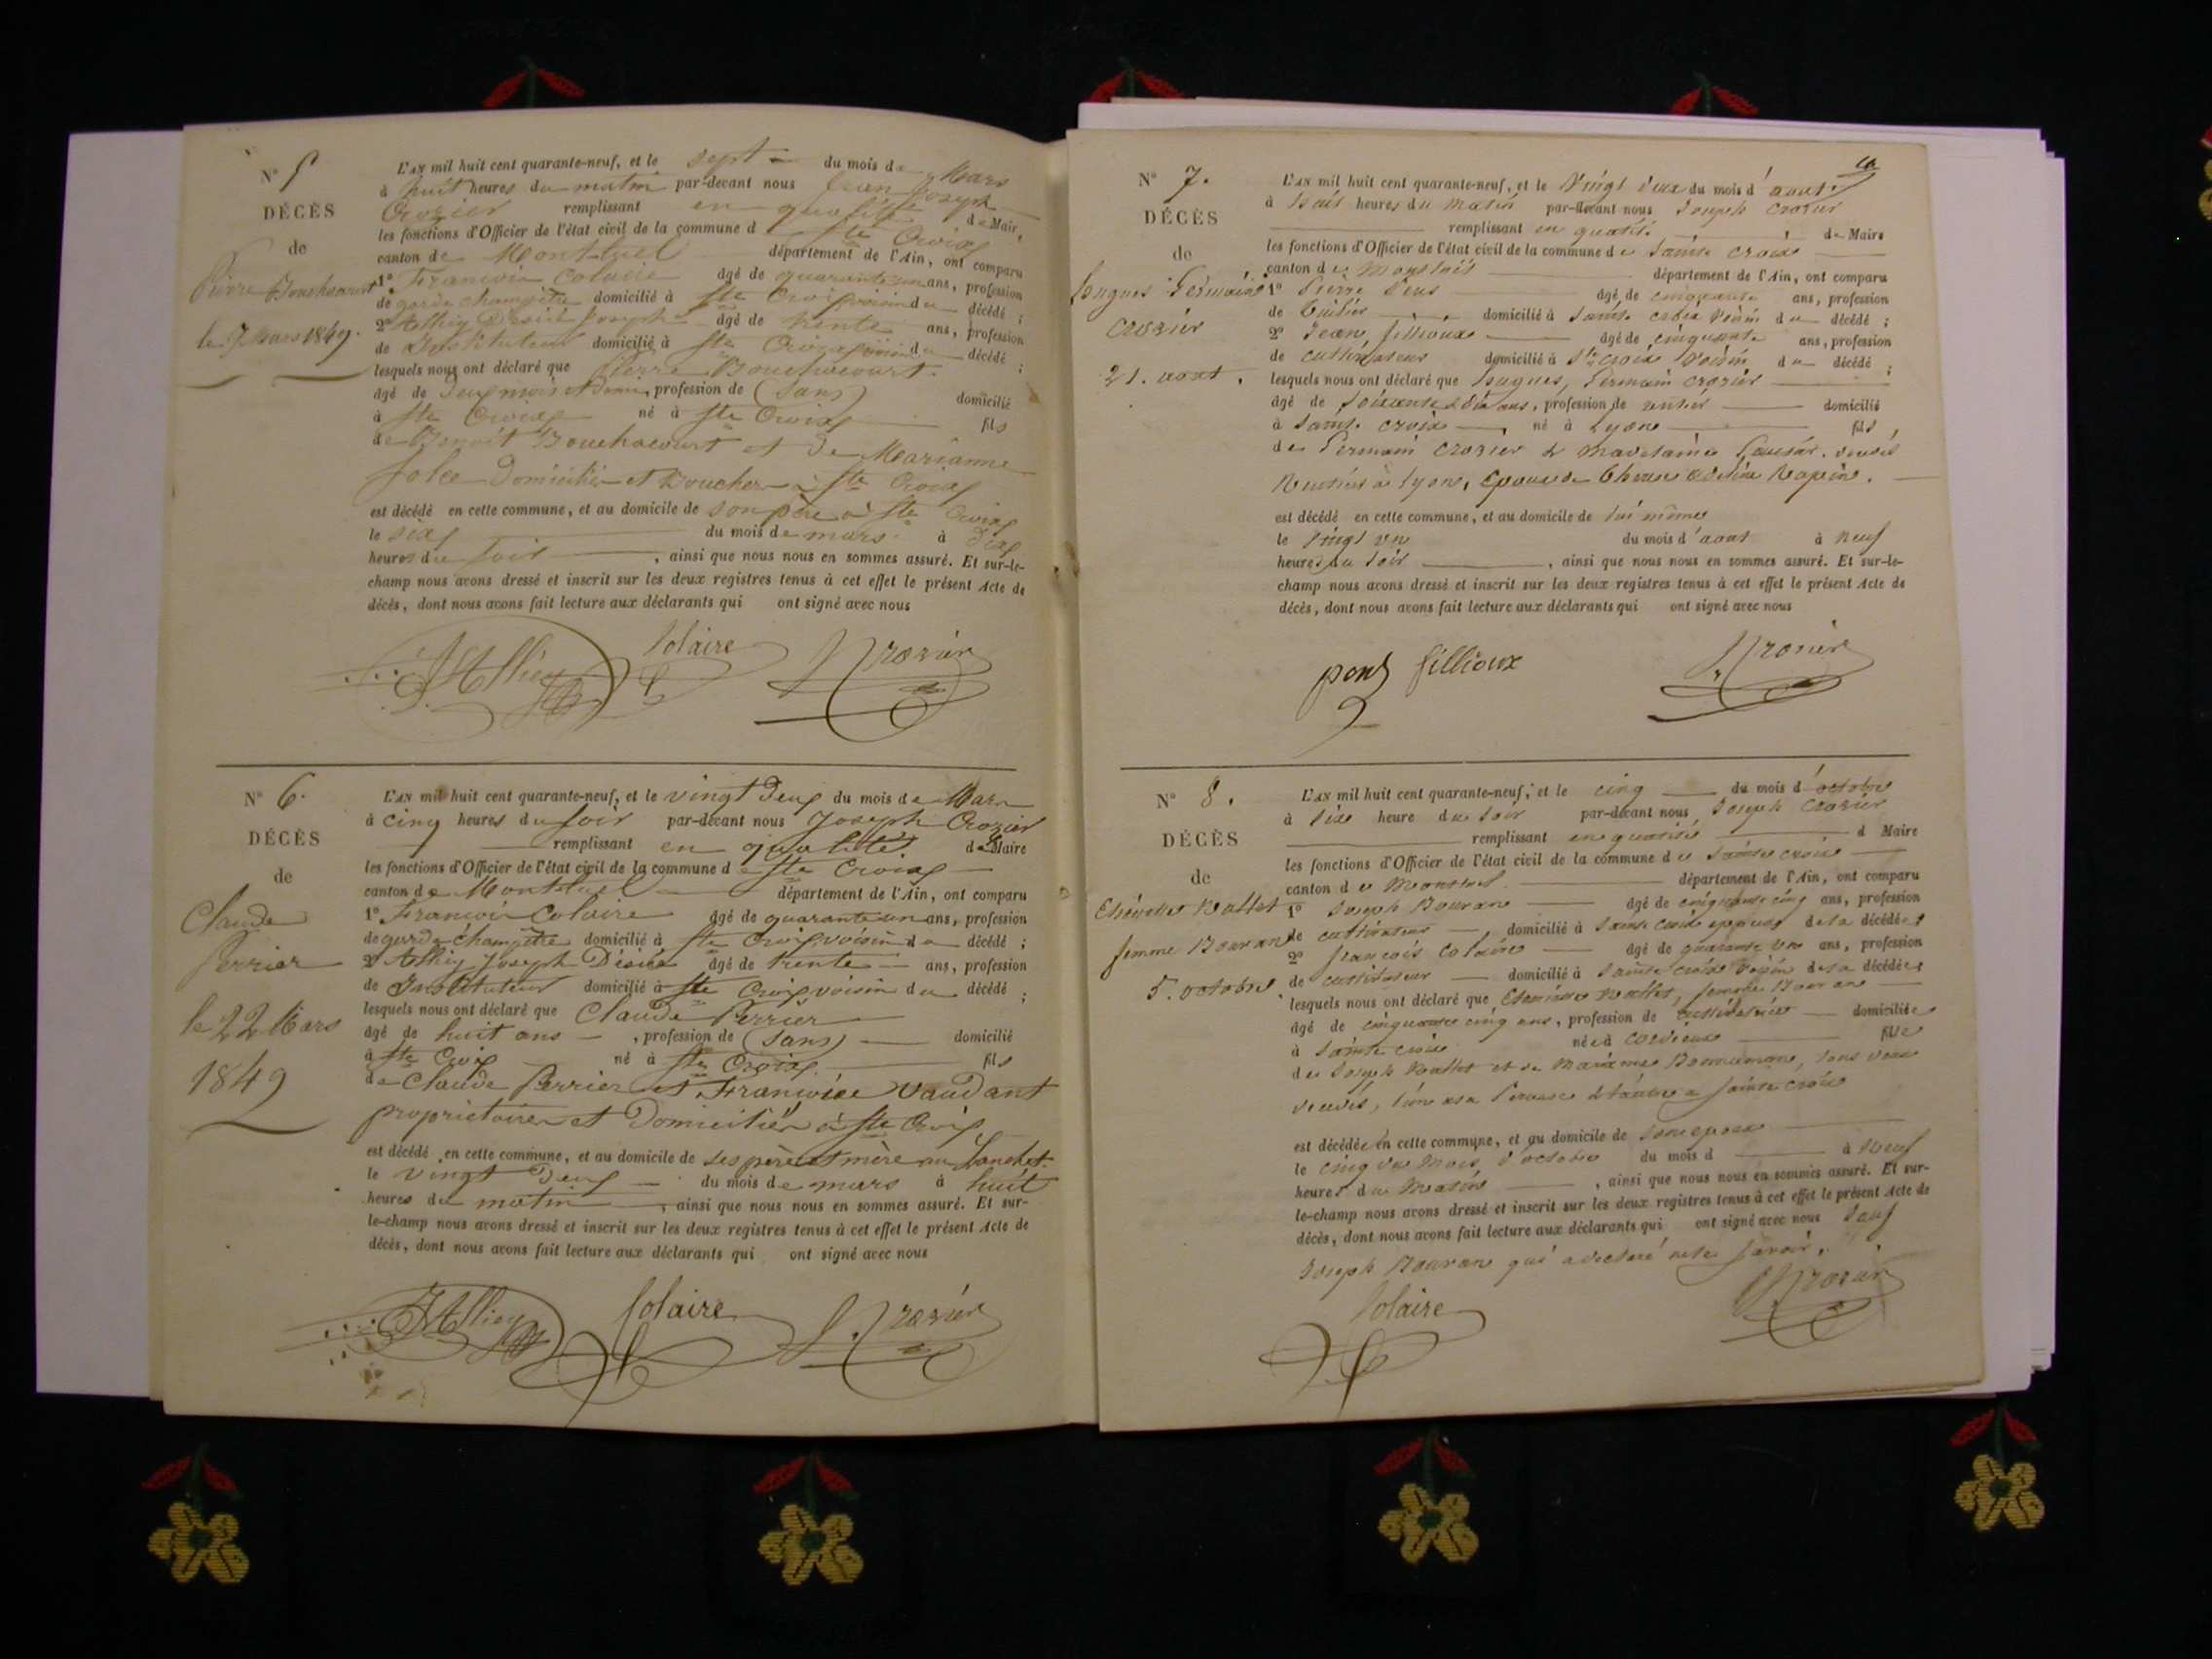 N° 5
DÉCÈS
de
Pierre Bouchacourt
le 7 Mars 1849.
L'AN mil huit cent quarante-neuf, et le sept du mois de Mars
à huit heures du matin par-devant nous Jean Joseph
Crozier remplissant en qualité de Maire
les fonctions d'Officier de l'état civil de la commune d Ste Croix
canton de Montluel département de l'Ain, ont comparu
1° François Colaire âgé de quarante un ans, profession
de garde champêtre domicilié à Ste Croix voisin du décédé ;
2° Désiré Joseph âgé de trente ans, profession
de Instituteur domicilié à Ste Croix voisin du décédé ;
lesquels nous ont déclaré que Pierre Bouchacourt.
âgé de deux mois et demi, profession de (sans) domicilié
à Ste Croix né à Ste Croix fils
de Benoit Bouchacourt et de Marianne
domiciliés à Ste Croix
est décédé en cette commune, et au domicile de son père à Ste Croix
le six du mois de mars à dix
heures du soir , ainsi que nous nous en sommes assuré. Et sur-le-
champ nous avons dressé et inscrit sur les deux registres tenus à cet effet le présent Acte de
décès, dont nous avons fait lecture aux déclarants qui ont signé avec nous
Colaire Crozier
N° 6.
DÉCÈS
de
Claude
Perrier
le 22 Mars
1849
L'AN mil huit cent quarante-neuf, et le vingt deux du mois de Mars
à cinq heures du soir par-devant nous Joseph Crozier
remplissant en qualité de Maire
les fonctions d'Officier de l'état civil de la commune d Ste Croix
canton de Montluel département de l'Ain, ont comparu
1° François Colaire âgé de quarante un ans, profession
de garde champêtre domicilié à Ste Croix voisin du décédé ;
2° Joseph Désiré âgé de trente ans, profession
de Instituteur domicilié à Ste Croix voisin du décédé ;
lesquels nous ont déclaré que Claude Perrier
âgé de huit ans , profession de (sans) domicilié
à Ste Croix né à Ste Croix fils
de Claude Perrier et Françoise Vaudant
proprietaires et domiciliés à Ste Croix
est décédé en cette commune, et au domicile de ses père et mère au
le vingt deux du mois de mars à huit
heures du matin , ainsi que nous nous en sommes assuré. Et sur-
le-champ nous avons dressé et inscrit sur les deux registres tenus à cet effet le présent Acte de
décès, dont nous avons fait lecture aux déclarants qui ont signé avec nous
Colaire J. Crozier
N° 7.
DÉCÈS
de
hugues Germain
crozier
21. aout.
L'AN mil huit cent quarante-neuf, et le vingt deux du mois d'aout.
à huit heures du matin par-devant nous Joseph crozier
remplissant en qualité de Maire
les fonctions d'Officier de l'état civil de la commune de Sainte croix
canton de Montluel département de l'Ain, ont comparu
1° Pierre âgé de cinquante ans, profession
de tuilier domicilié à Sainte croix voisin du décédé ;
2° Jean fillioux âgé de cinquante ans, profession
de cultivateur domicilié à Ste croix voisin du décédé ;
lesquels nous ont déclaré que hugues, Germain crozier
âgé de soixante dix ans, profession de rentier domicilié
à Sainte croix né à Lyon fils
de Germain crozier &
Rentiers à Lyon, époux de Rapin.
est décédé en cette commune, et au domicile de lui même
le vingt un du mois d'aout à neuf
heures du soir , ainsi que nous nous en sommes assuré. Et sur-le-
champ nous avons dressé et inscrit sur les deux registres tenus à cet effet le présent Acte de
décès, dont nous avons fait lecture aux déclarants qui ont signé avec nous
fillioux Crozier
N° 8.
DÉCÈS
de
femme Bouvan
5. octobre
L'AN mil huit cent quarante-neuf, et le cinq du mois d'octobre
à six heure du soir par-devant nous Joseph Crozier
remplissant en qualité d Maire
les fonctions d'Officier de l'état civil de la commune de Sainte croix
canton de Montluel département de l'Ain, ont comparu
1° Joseph Bouvan âgé de cinquante cinq ans, profession
de cultivateur domicilié à Sainte croix époux de la décédée ;
2° françois Colaire âgé de quarante un ans, profession
de cultivateur domicilié à Sainte croix voisin de la décédée ;
lesquels nous ont déclaré que femme Bouvan
âgé de cinquante cinq ans, profession de cultivatrice domiciliée
à Sainte croix née à Cordieux fille
de Joseph et de tous deux
décédés, Sainte croix
est décédée en cette commune, et au domicile de son epoux
le cinq du mois d'octobre du mois d à neuf
heures du matin , ainsi que nous nous en sommes assuré. Et sur-
le-champ nous avons dressé et inscrit sur les deux registres tenus à cet effet le présent Acte de
décès, dont nous avons fait lecture aux déclarants qui ont signé avec nous sauf
Joseph Bouvan qui a déclaré ne le savoir.
Colaire Crozier